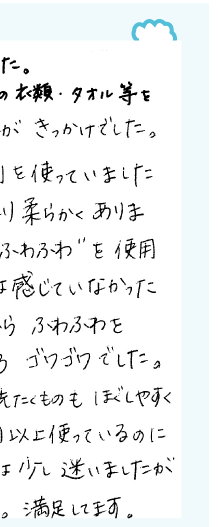 た。
の衣類・タオル等を
がきっかけでした。
を使っていました
り柔らかくありま
ふわふわ”を使用
は感じていなかった
ら ふわふわを
ろ ゴワゴワでした。
洗たくものも ほぐしやすく
以上使っているのに
は少し迷いましたが
。満足してます。